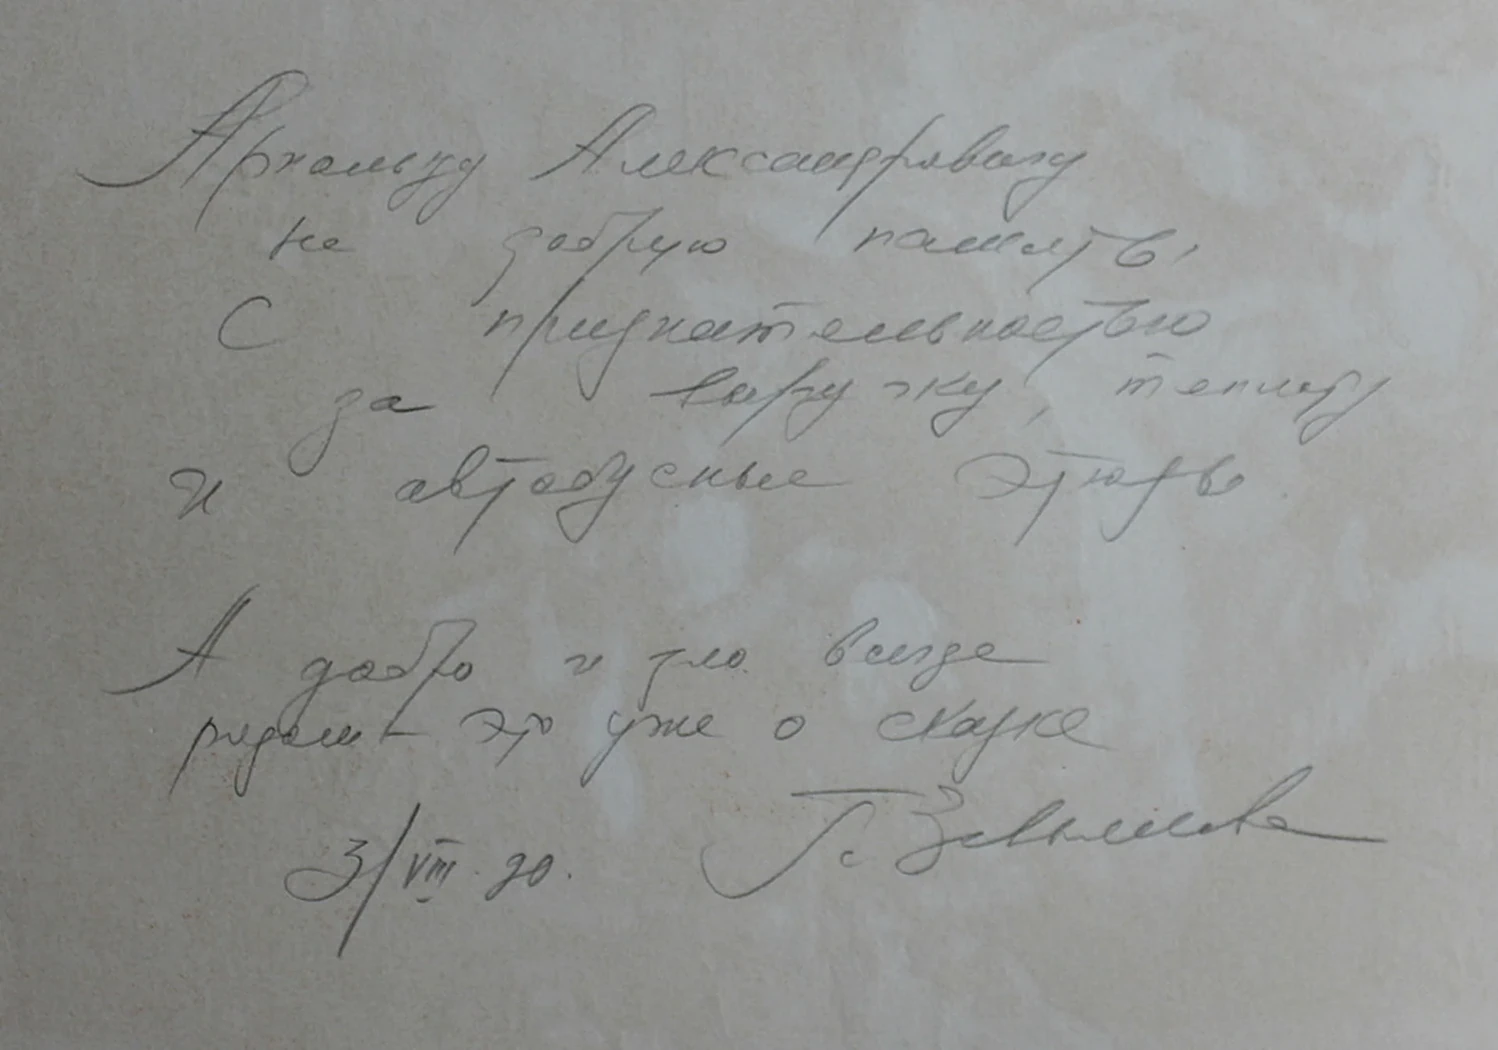 Арнольду Александровичу
на добрую память,
С признательностью
за выручку, теплоту
и автобусные этюды
А добро и зло всегда
рядом – это уже о сказке
3/VIII.90. Г.